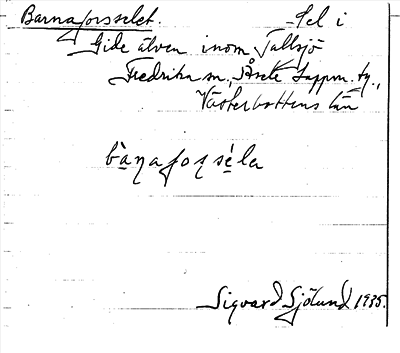 Barnaforsselet. - Sel i
Gide älven inom Tallsjö
Fredrika sn, Åsele Lappm. tg.,
Västerbottens län
bànafoṣséla
Sigvard Sjölund 1935.